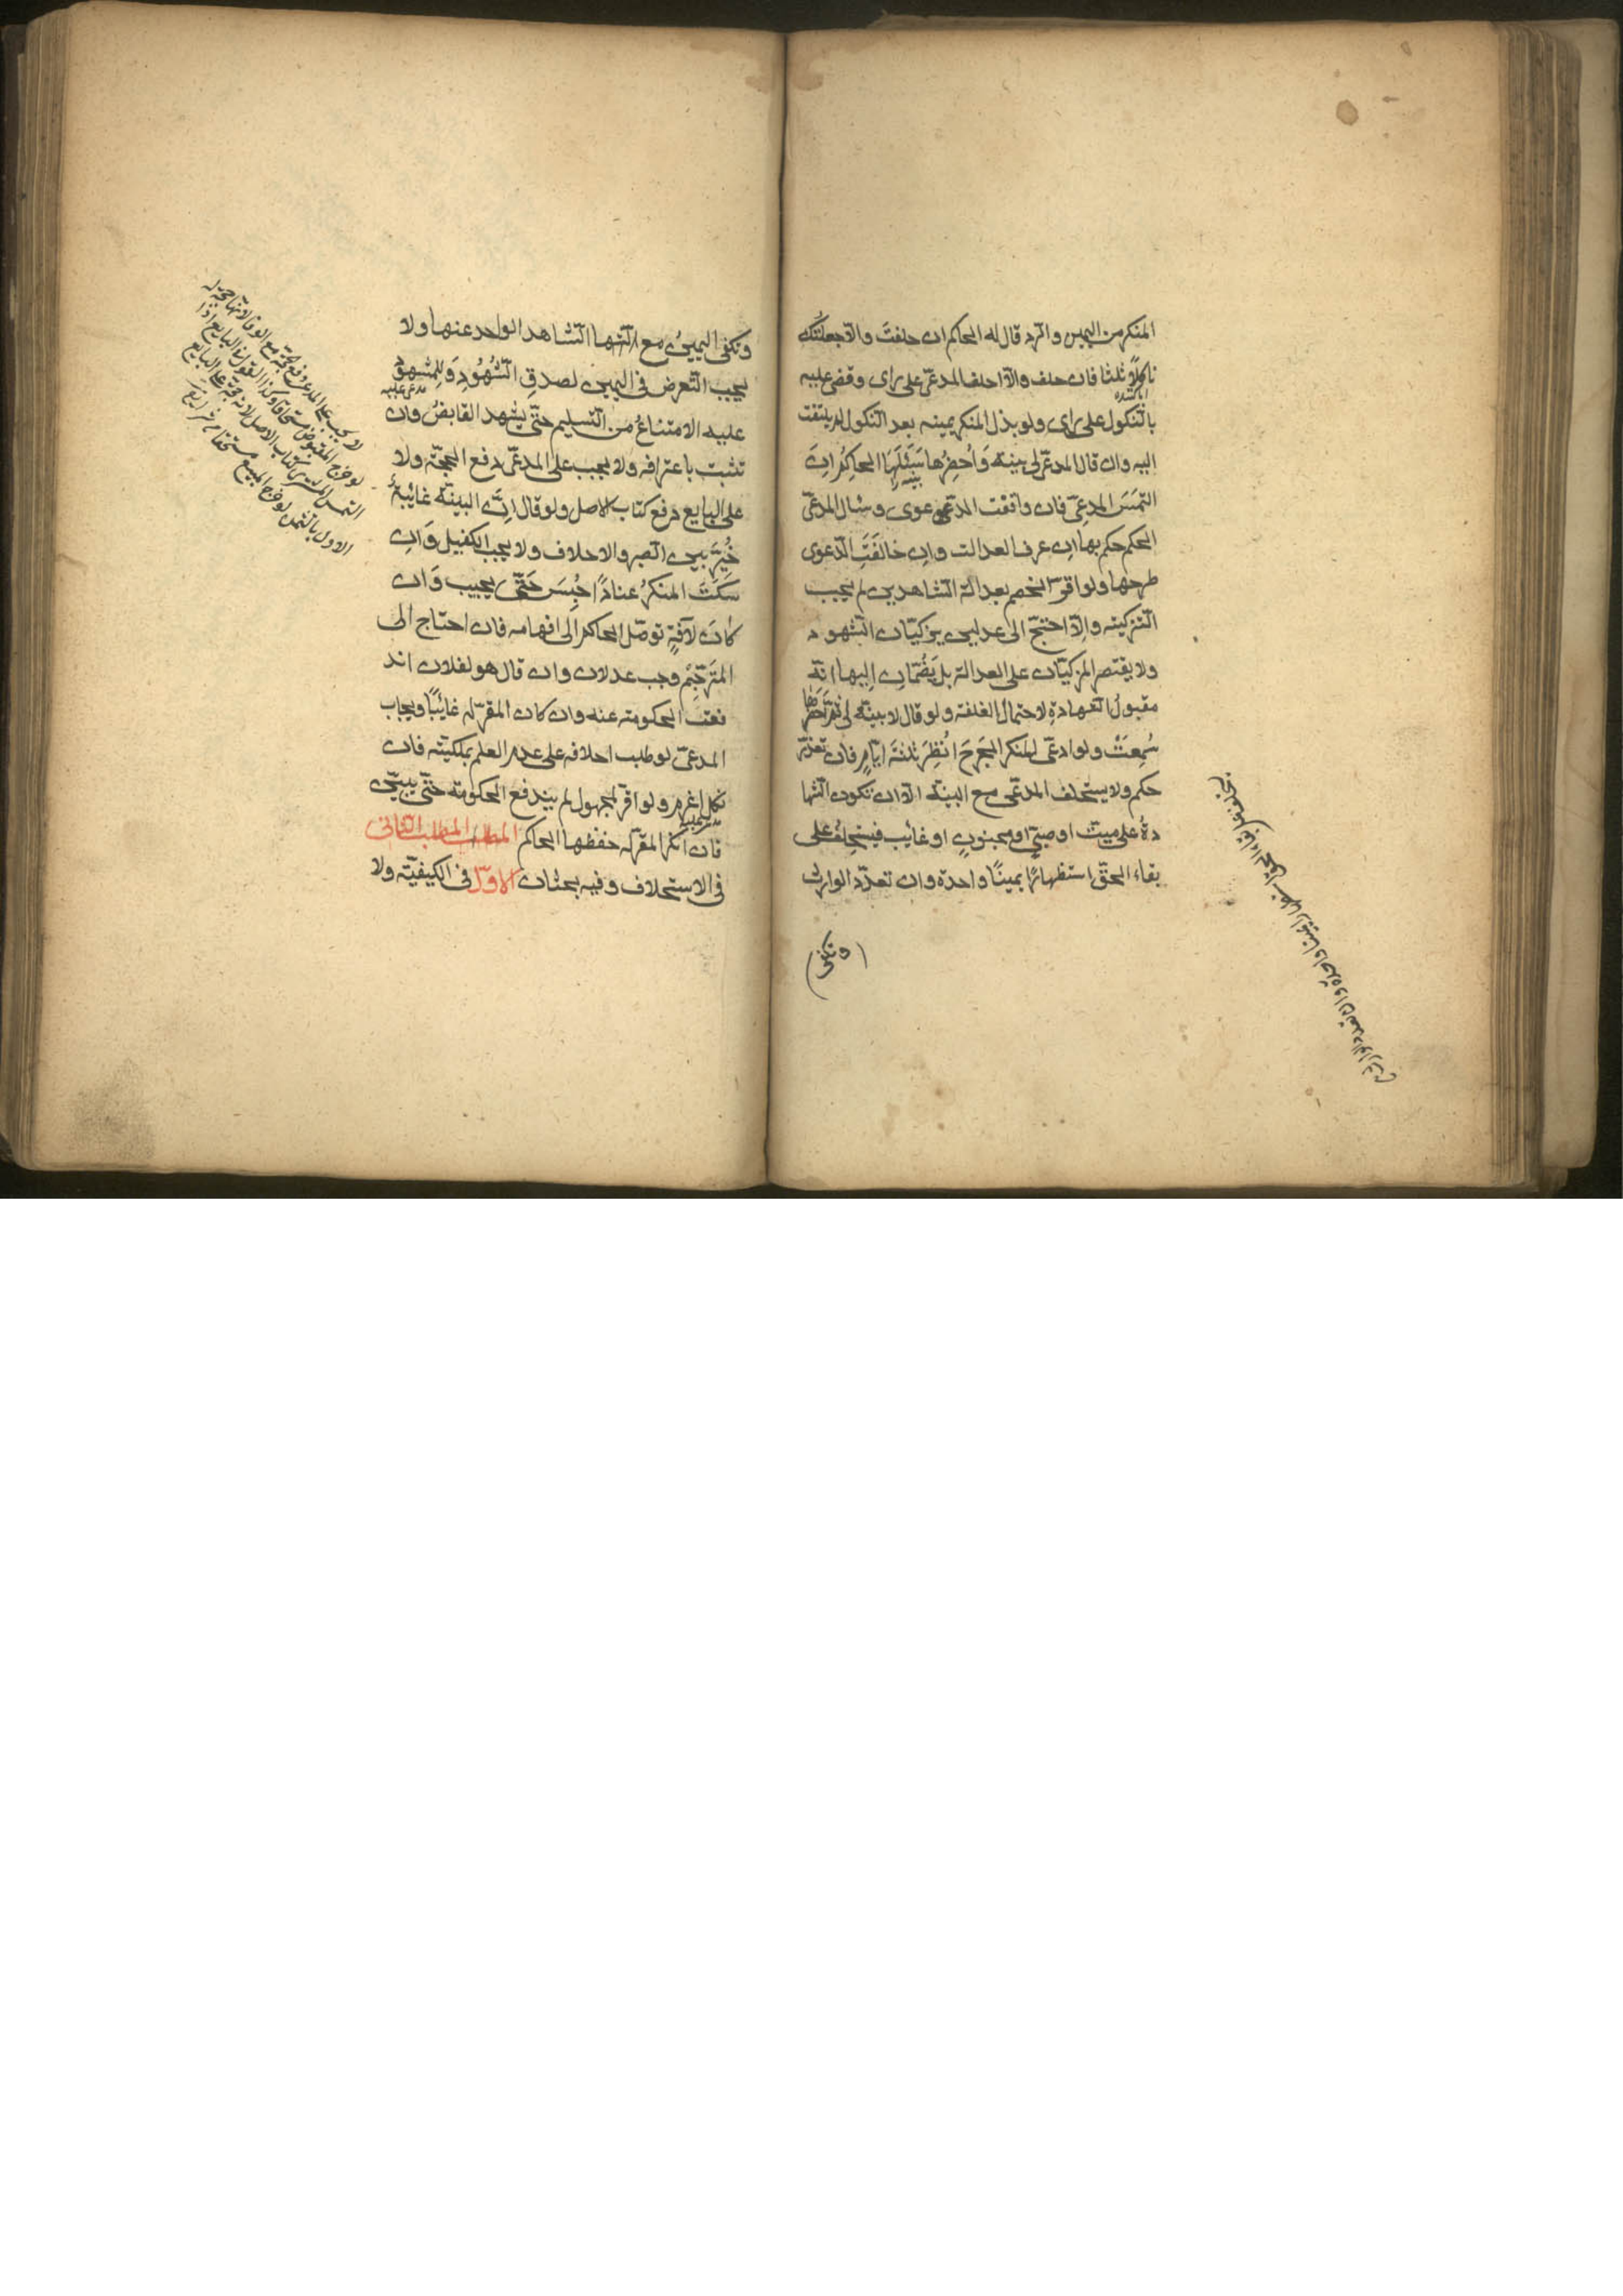 المنكر من اليمين والرد قال له الحاكم ان حلفتَ والّا جعلتُكَ
ناكلًا ثلثا فان حلف والّا احلف المدعّى على راى وقضى عليه
بالنّكول على راى ولو بذل المنكر يمينه بعد النّكول لم يلتفت
اليه وان قال المدعّى لى بينة وَاُحضِرُها سَئَلَهَا الحاكِمُ اِن
التَمَسَ المدعِىّ فان وافقت الدّعوى وسئال المدعّى
الحكم حكم بها اِن عرف العدالت واِن خالفَتِ الّدعوى
طرحها ولو اقرّ الخصم بعدالة الشاهدين لم يجب
التزكيته والّا احتجّ الى عدلين يزكيّان الشهود
ولا يقتصر المزكيّان على العدالة بل يَضُمّانِ اِليها انّه
مقبولُ الشهادةِ لاحتمال الغلفته ولو قال لا بينّه لى ثم احضرها
سُمِعَتْ ولو ادعّى المنكر الجَرحَ اُنظِرَ ثلثةَ ايّامٍ فان تعذّر
حكم ولا يستحلف المدعّى مع البينّة الّا ان تكون الشها
دةُ على ميّت او صبّى او مجنونٍ او غائب فيستحلِفُ على
بقاء الحقّ استظهارًا يمينًا واحدة وان تعدّد الوارث
(وتكفى)
يستحلف على بقاء الحق استظهارا يمينا واحدة وان تعدد الوارث
وتكفى اليمينُ مع الشاهد الواحد عنها ولا
يجب التّعرض فى اليمين لصدقِ الشُّهُودِ وَلِلمشهودِ
مدعى عليه
عليه الامتناعُ من التّسليم حتّى يشهد القابضُ وان
تثبت باعترافه ولا يجب على المدعّى دفع الحجّة ولا
على البايع دفع كتاب الاصل ولو قال اِنَّ البينّة غائبةٌ
خُيِّرَ بين الصبر والاحلاف ولا يجب الكفيل وَاِن
سَكَتَ المنكرُ عنادًا حُبِسَ حَتّى يجيب وَان
كانَ لآفةٍ توصّل الحاكم الى افهامه فان احتاج الى
المترَجِّم وجب عدلان وان قال هو لفلان اند
فعت الحكومته عنه وان كان المقرّ له غائبًا ويجاب
المدعّى لو طلب احلافه على عدم العلم بملكيّته فان
نكل اغرم ولو اقرّ لمجهول لم يندفع الحكومته حتّى يبيّن
فان انكر المقرّ له حفظها الحاكم المطلب المطلب الثّانى
فى الاستحلاف وفيه بحثان الاوّل فى الكيفيّته ولا
لا يجب على المدعى دفع الحجة مع الوفا لانها حجة له
لو خرج المقبوض مستحقا وكذا القول فى البايع اذا
التمس المشترى كتاب الاصل لانه حجة على البايع
الاول بالثمن لو خرج المبيع مستحقا